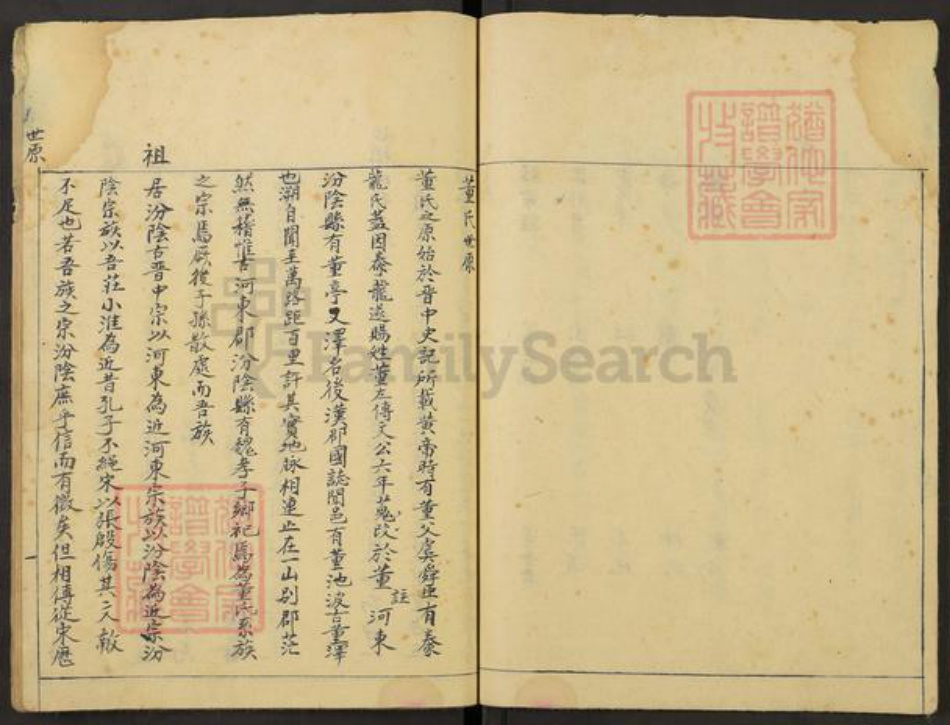 董氏世原
董氏之原始於晋中史記所載黃帝時有董父虞舜臣有豢
龍氏蓋因豢龍遂賜姓董左傳文公六年蒐改於董註河東
汾陰縣有董亭又澤名後漢郡國誌聞邑有董池陂古董澤
也溯自聞至萬路距百里許其實地脉相連止在一山别郡茫
然無稽惟古河東郡汾陰縣有魏孝子鄉祀焉為董氏系族
之宗焉厥後子孫散處而吾族
祖居汾陰古晋中宗以河東為近河東宗族以汾陰為近宗汾
陰宗族以吾莊小淮為近昔孔子不絕宋以張殷傷其二人敵
不足也若吾族之宗汾陰庶乎信而有徵矣但相傳從宋歷
世原
猶他家譜學會收藏
猶他家譜學會收藏
FamilySearch